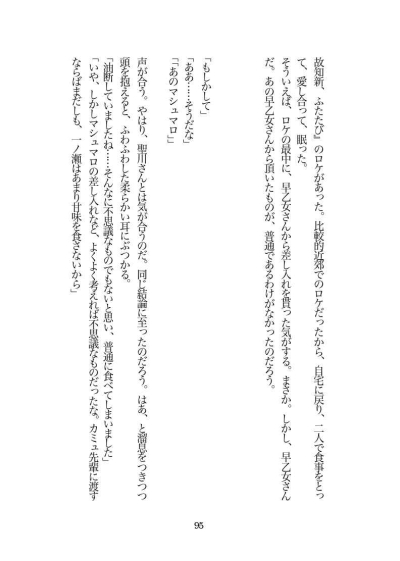 故知新、ふたたび』のロケがあった。比較的近郊でのロケだったから、自宅に戻り、二人で食事をとっ
て、愛し合って、眠った。
そういえば、ロケの最中に、早乙女さんから差し入れを貰った気がする。まさか。しかし、早乙女さん
だ。あの早乙女さんから頂いたものが、普通であるわけがなかったのだろう。
「もしかして」
「ああ……そうだな」
「「あのマシュマロ」」
声が合う。やはり、聖川さんとは気が合うのだ。同じ結論に至ったのだろう。はあ、と溜息をつきつつ
頭を抱えると、ふわふわした柔らかい耳にぶつかる。
「油断していましたね……そんなに不思議なものでもないと思い、普通に食べてしまいました」
「いや、しかしマシュマロの差し入れなど、よくよく考えれば不思議なものだったな。カミュ先輩に渡す
ならばまだしも、一ノ瀬はあまり甘味を食さないから」
95